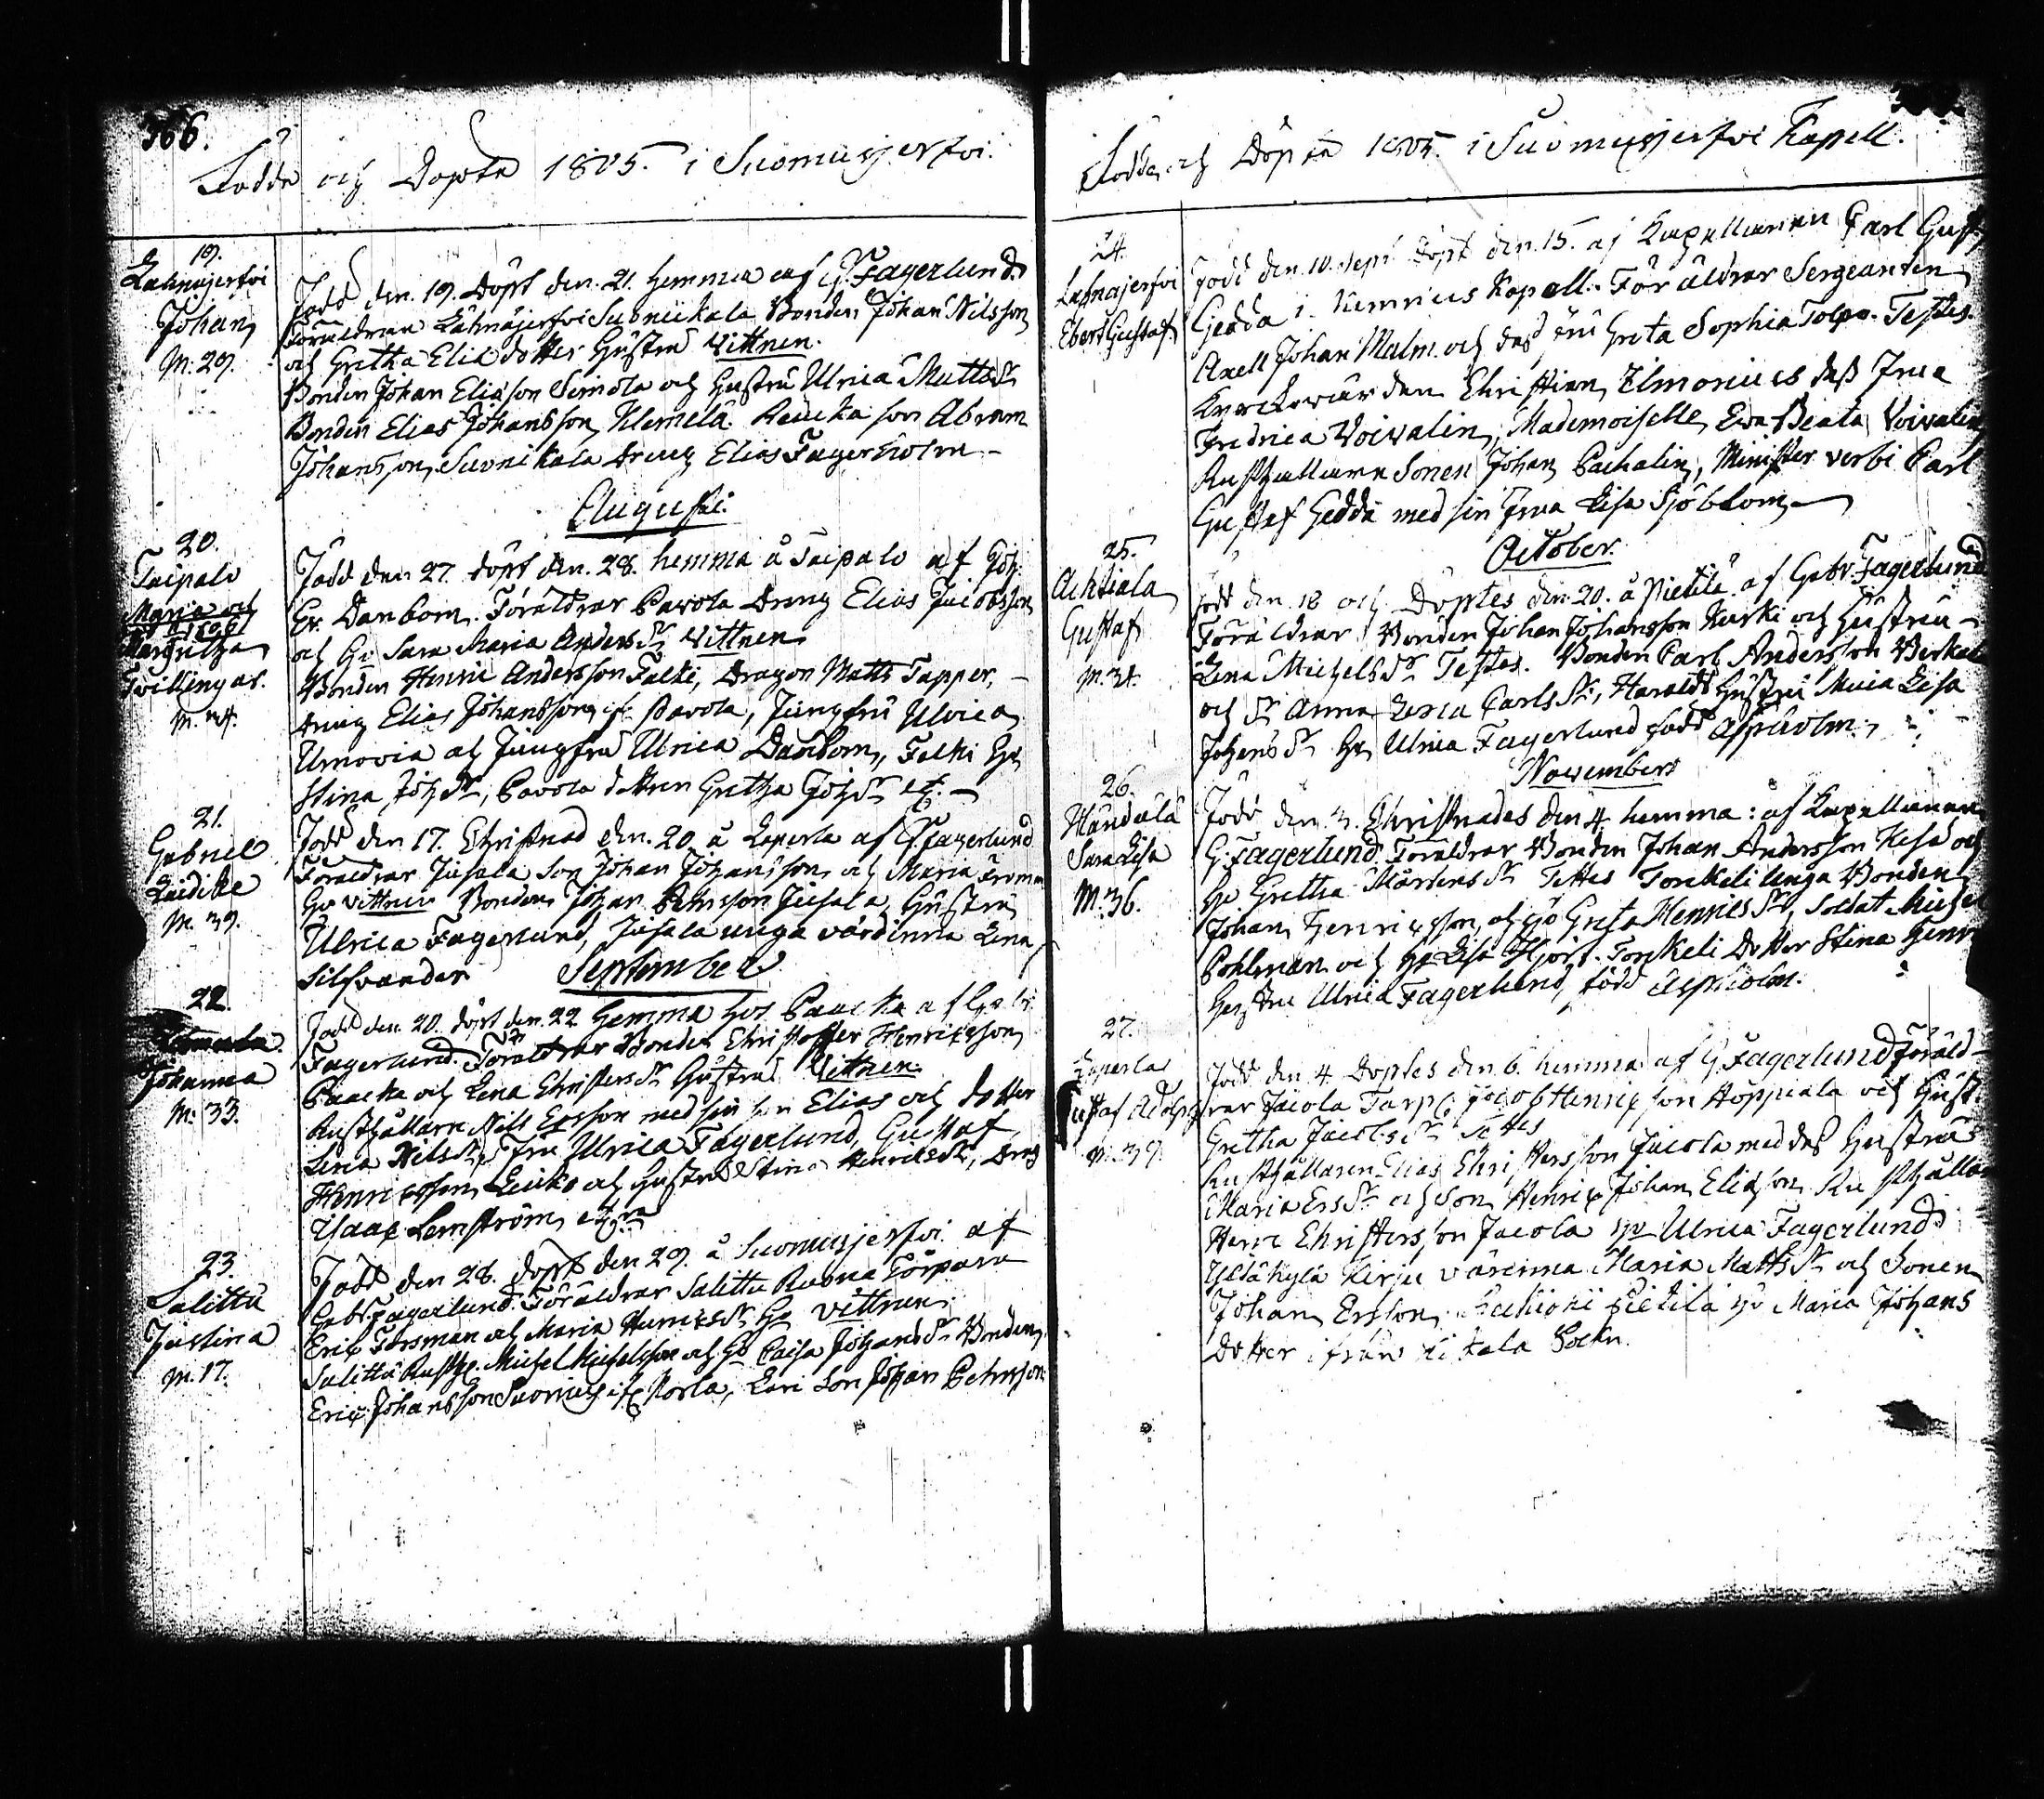 366.
Födde och Döpte 1805. i Suomusjerfvi.
19.
Lahnajerfvi
Johan
M. 29.
Född den 19. Döpt den 21. hemma af G. Fagerlund
Föräldrar Lahnajerfvi Suonikala Bonden Johan Nilsson
och Gretha Eliæ dotter Hustru Vittnen.
Bonden Johan Eliæson Simola och Hustru Ulrica Matts Dr
Bonden Elias Johansson Klemelä son Abram
Johansson Suonikala Dreng Elias Fagerholm
Augusti.
20.
Taipalo
Maria och
Margretha
Tvillingar.
M. 34.
Född den 27. döpt den 28. hemma å Taipalo af Joh.
Er. Danbom. Föräldrar Pavola Dreng Elias Jacobsson
och Hu Sara Maria Anders Dr Vittnen
Bonden Henric Andersson Falki, Dragon Matts Tapper,
Dreng Elias Johansson Pavola, Jungfru Ulrica
och Jungfru Ulrica Danbom, Falki Hu
Stina Joh Dr, Pavola dottren Gretha Joh Dr etc.
21.
Gabriel
Laidike
M. 39.
Född den 17. Christnad den 20 å Laperla af G. Fagerlund
Föräldrar Jusala Son Johan Johansson och Maria
Hu Vittnen Bonden Johan Pehrsson Jusala Hustru
Ulrica Fagerlund, Jusala unga värdinna Lena
Silfvander
September
22.
Johanna
M. 33.
Född den 20. döpt den 22 hemma hos Paacka af Gabr.
Fagerlund. Föräldrar Bonden Christoffer Henricsson
Paacka och Lena Christers Dr Hustru Vittnen.
Rusthållarn Nils Ersson med sin son Elias och dotter
Lena Nils Dr, Fru Ulrica Fagerlund, Gustaf
Henricsson Leiko och Hustru Stina Henrics Dr, Dreng
Isaac Lemström etc
23.
Salittu
Justina
M. 17.
Född den 28. döpt den 29. å Suomusjerfvi af
Gabr Fagerlund. Föräldrar Salittu Torpare
Eric Forsman och Maria Henrics Dr Hu Vittnen
Salittu Rusth. Michel Michelsson och Hu Caisa Johans Dr Bonden
Eric Johansson Suomusj: Norla, Lari Son Johan Pehrsson
Födde och Döpte 1805. i Suomusjerfvi Kapell.
24.
Lahnajerfvi
Ebert Gustaf
Född den 10. Sept. Döpt den 15. af Kapellanen Carl Gust.
Gjedda i Kapell. Föräldrar Sergeanten
Axell Johan Malm och dess fru Greta Sophia Tolpo. Testes.
Christian Elmonius dess Frua
Fredrica Voivalin, Mademoiselle Eva Beata Voivalin
Rusthållare Sonen Johan Pachalin, Minister verbi Carl
Gustaf Gedda med sin Frua Lisa Sjöblom
October.
25.
Achtiala
Gustaf
M. 34.
född den 18 och Döptes den 20. å Pietilä af Gabr. Fagerlund
Föräldrar Bonden Johan Johansson Kurki och Hustru
Lena Michels Dr Testes. Bonden Carl Andersson
och Dr Anna Lena Carls Dr, Haralds Hustru Maria Lisa
Johans Dr Hu Ulrica Fagerlund född Aspholm
November
26.
Handala
Sara Lisa
M. 36.
Född den 3. Christnades den 4 hemma: af Kapellanen
G. Fagerlund. Föräldrar Bonden Johan Andersson och
Hu Gretha Mårtens Dr Testes Torkeli unga Bonden
Johan Henricsson, och Hu Greta Henrics Dr, Soldat Michel
Pohlman och Hu Lisa Hjort. Torkeli Dotter Stina Henr
Hustru Ulrica Fagerlund, född Aspholm.
27.
Laperla
Gustaf Adolph
M. 39
Född den 4. Döptes den 6. hemma af G Fagerlund Föräld-
rar Jacola Torp. Jacob Henricsson Hoppiala och Hust.
Gretha Jacobs Dr Testes
Rusthållaren Elias Christersson Jacola med dess Hustru
Maria Ers Dr och Son Henric Johan Eliæson Rusthållar
Henric Christersson Jacola Hu Ulrica Fagerlund
Yldäkylä Maria Matts Dr och Sonen
Johan Ersson Pietilä Hu Maria Johans
Dotter ifrån Kikala Sockn.